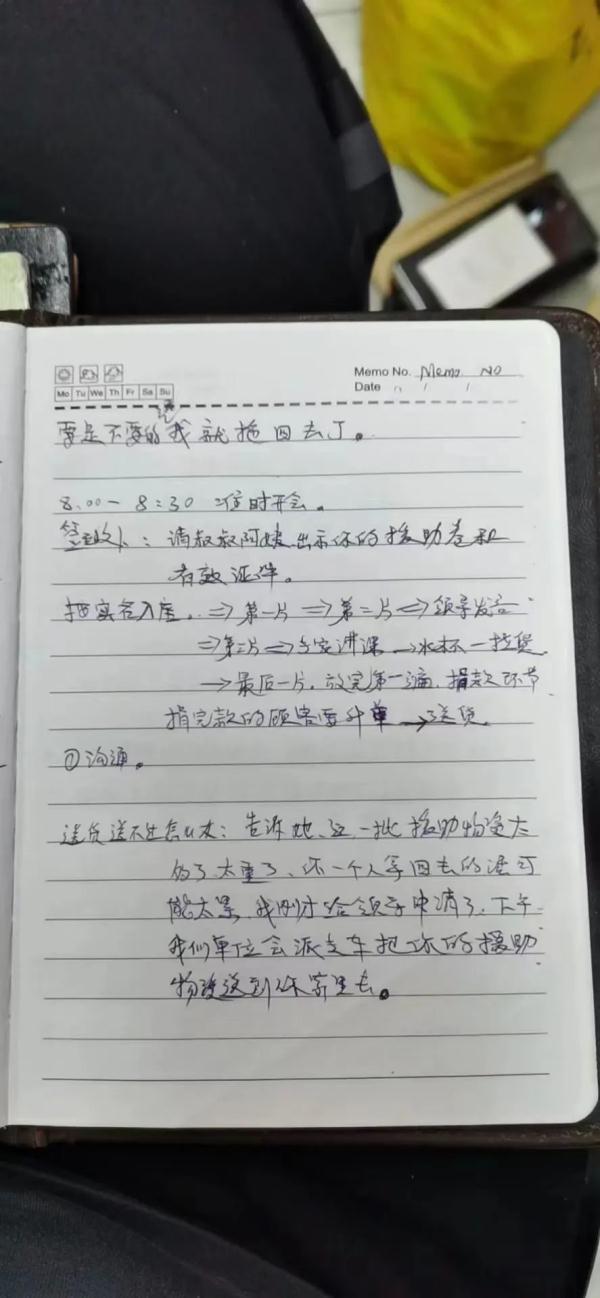 Memo No. Memo No
Date / /
Mo Tu We Th Fr Sa Su
要是不要的我就拖回去了。
8.00－8:30 准时开会。
签到人：请叔叔阿姨出示你的援助卷和
有效证件。
实名入座。⇒第一片⇒第二片⇒领导发言
⇒第三片⇒专家讲课→水杯一找货
→最后一片，放完第一遍，捐款环节
捐完款的顾客要升单→送货
①沟通。
送货送不出怎么办：告诉她，这一批援助物资太
多了太重了，你一个人拿回去的话可
能太累，我刚才给领导申请了，下午
我们单位会派专车把你的援助
物资送到你家里去。